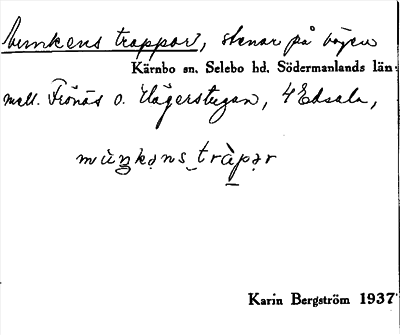 Munkens trappor, stenar på vägen
Kärnbo sn. Selebo hd. Södermanlands län
mell. Frönäs o. Hägerstugan, 4 Edsala,
mùŋkəns‿tràpər
Karin Bergström 1937